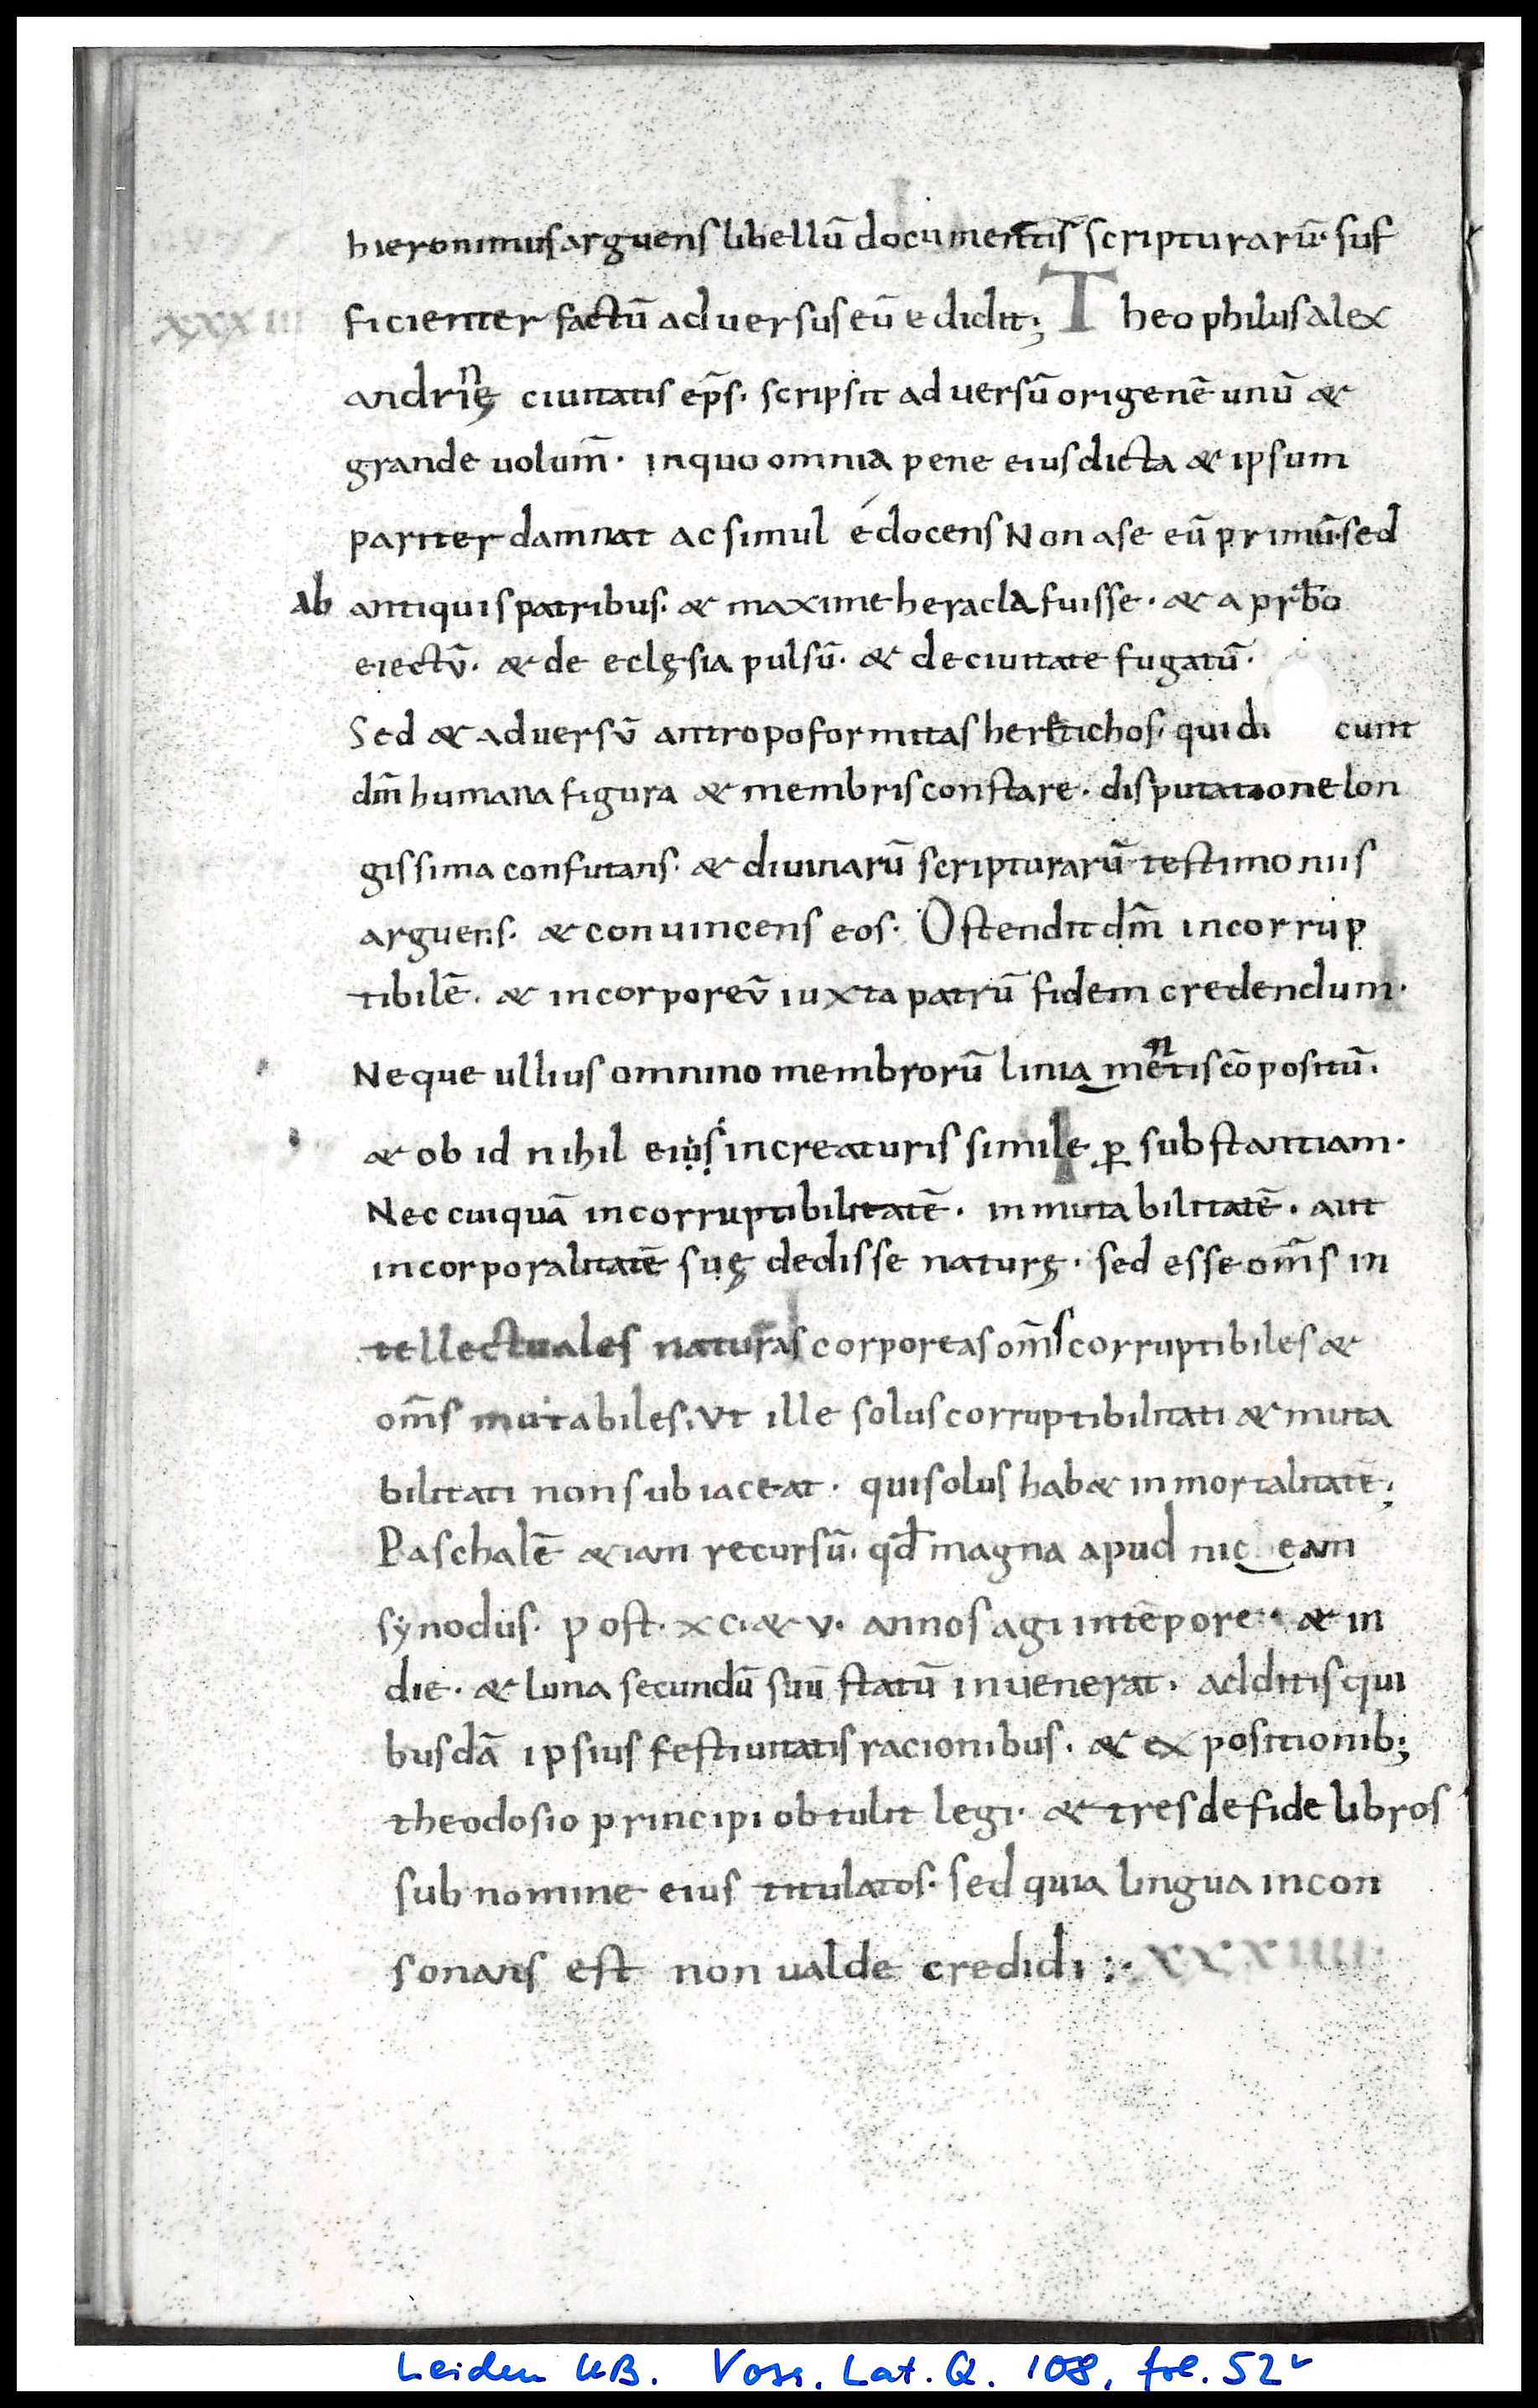 hieronimus arguens libellū documentis scripturarū· suf
XXXIII ficienter factū adversus eū edidit; Theophilus alex
andrinę civitatis ep̄s· scripsit adversū origenē unū &
grande volum̄· in quo omnia pene eius dicta & ipsum
pariter damnat ac simul édocens Non a se eū primū· sed
ab antiquis patribus· & maxime heracla fuisse· & a prb̄o
eiectū· & de eclęsia pulsū· & de civitate fugatū·
Sed & adversū antropoformitas heretichos· qui di cunt
dm̄ humana figura & membris constare· disputatione lon
gissima confutans· & divinarū scripturarū testimoniis
arguens· & convincens eos· Ostendit dm̄ incorrup
tibilē· & incorporeū iuxta patrū fidem credendum·
Neque ullius omnino membrorū liniamentis cōpositū·
& ob id nihil eius in creaturis simile p̱ substantiam·
Nec cuiquā incorruptibilitatē· inmutabilitatē· aut
incorporalitatē suę dedisse naturę· sed esse om̄s in
tellectuales naturas corporeas om̄s corruptibiles &
om̄s mutabiles· Ut ille solus corruptibilitati & muta
bilitati non subiaceat· qui solus hab& inmortalitatē;
Paschalē &iam recursū· qd̄ magna apud nic eam
synodus· post· xc· & v· annos agi in tēpore & in
die· & luna secundū suū statū invenerat· additis qui
busdā ipsius festivitatis racionibus· & expositionib;
theodosio principi obtulit legi· & tres de fide libros
sub nomine eius titulatos· sed quia lingua incon
sonans est non valde credidi :· XXXIIII·
Leiden UB. Voss. Lat. Q. 108, fol. 52v